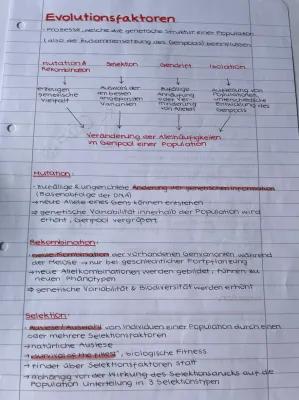 Evolutionsfaktoren
· Prozesse, welche die genetische Struktur einer Population
(also der Zusammensetzung des Genpools) beeinflussen
Mutation & Rekombination Selektion Gendrift Isolation
erzeugen genetische Vielfalt
Auswahl der am besten angepassten Varianten
Zufällige Anhäufung oder Verminderung von Allelen
Aufteilung von Populationen, unterschiedliche Entwicklung des Genpools
Veränderung der Allelhäufigkeiten
im Genpool einer Population
Mutation:
· zufällige & ungerichtete Änderung der genetischen Information
(Basenabfolge der DNA)
→ neue Allele eines Gens können entstehen
⇒ genetische Variabilität innerhalb der Population wird
erhöht, Genpool vergrößert
Rekombination:
· neue Kombination der vorhandenen Genvarianten während
der Meiose → nur bei geschlechtlicher Fortpflanzung
→ neue Allelkombinationen werden gebildet, führen zu
neuen Phänotypen
⇒ genetische Variabilität & Biodiversität werden erhöht
Selektion:
· Auslese / Auswahl von Individuen einer Population durch einen
oder mehrere Selektionsfaktoren
→ natürliche Auslese
→ „survival of the fittest", biologische Fitness
→ findet über Selektionsfaktoren statt
→ abhängig von der Wirkung des Selektionsdrucks auf die
Population Unterteilung in 3 Selektionstypen